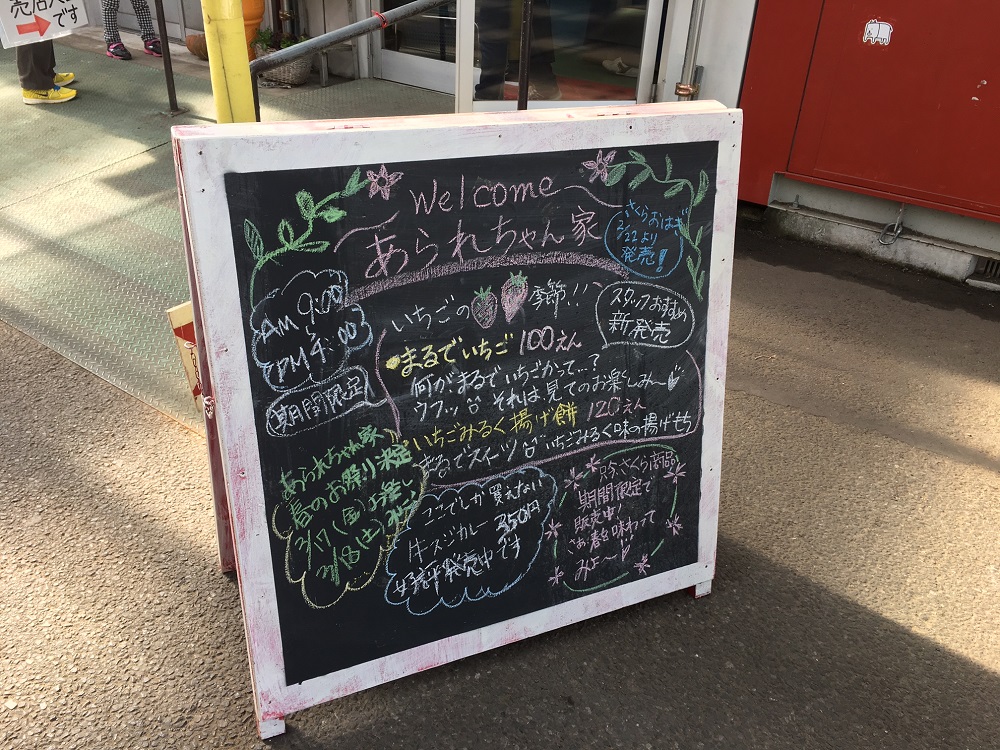 売店入口
です
Welcome
あられちゃん家
さくらおはぎ
2/22より
発売!
AM 9:00
PM 4:00
期間限定
いちごの季節!!
スタッフおすすめ
新発売
まるでいちご 100えん
何がまるでいちごかって…?
ウフッ それは見てのお楽しみ〜
いちごみるく揚げ餅 120えん
まるでスイーツ いちごみるく味の揚げもち
あられちゃん家
春のお祭り
3/17(金)
3/18(土)
ここでしか買えない
牛スジカレー 350円
好評発売中です
さくら商品
期間限定で
販売中!
春を味わって
みよ〜